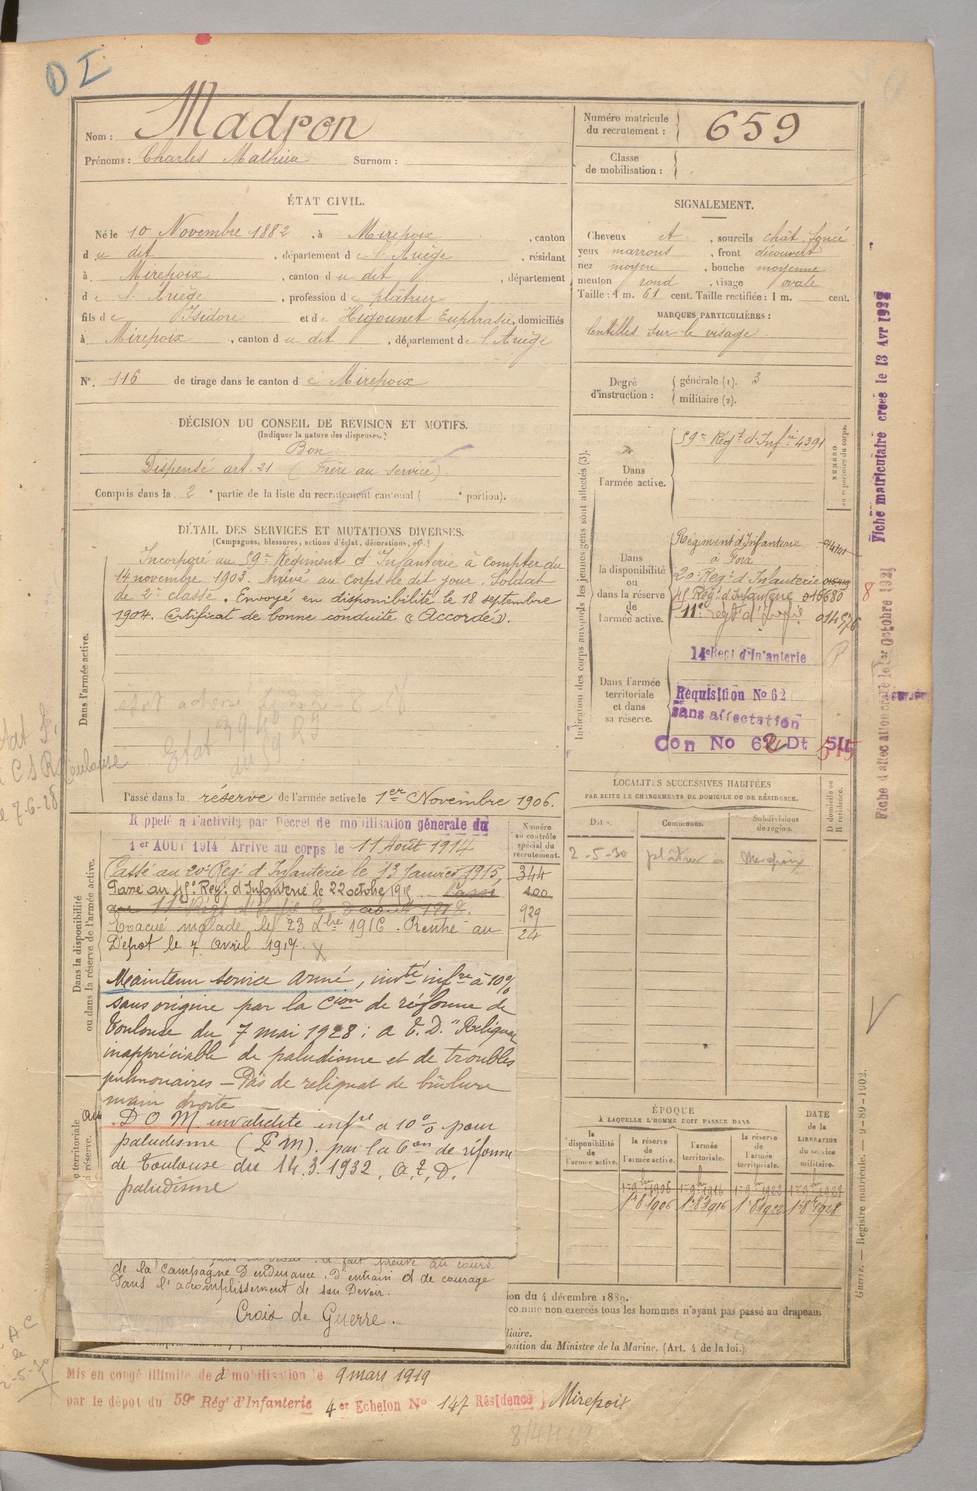 D I
Nom : Madron
Prénoms : Charles Mathieu Surnom :
Numéro matricule du recrutement : 659
Classe de mobilisation :
ÉTAT CIVIL.
Né le 10 Novembre 1882, à Mirepoix, canton
d u dit, département d e l'Ariège, résidant
à Mirepoix, canton d u dit, département
d e l'Ariège, profession d e plâtrier
fils d e Isidore et d e Higounet Euphrasie, domiciliés
à Mirepoix, canton d u dit, département d e l'Ariège
N°. 116 de tirage dans le canton d e Mirepoix
SIGNALEMENT.
Cheveux et, sourcils chât. foncé
yeux marrons, front découvert
nez moyen, bouche moyenne
menton rond, visage ovale
Taille : 1 m. 61 cent. Taille rectifiée : 1 m. cent.
MARQUES PARTICULIÈRES :
lentilles sur le visage
Degré d'instruction : générale (1). 3
militaire (2).
DÉCISION DU CONSEIL DE REVISION ET MOTIFS.
(Indiquer la nature des dispenses.)
Bon
Dispensé art. 21 (Frère au service)
Compris dans la 2e partie de la liste du recrutement cantonal ( e portion).
DÉTAIL DES SERVICES ET MUTATIONS DIVERSES.
(Campagnes, blessures, actions d'éclat, décorations, etc.)
Dans l'armée active.
Incorporé au 59e Régiment d'Infanterie à compter du
14 novembre 1903. Arrivé au corps le dit jour. Soldat
de 2e classe. Envoyé en disponibilité le 18 septembre
1904. Certificat de bonne conduite "Accordé".
Passé dans la réserve de l'armée active le 1er Novembre 1906.
Dans la disponibilité ou dans la réserve de l'armée active.
Rappelé à l'activité par Décret de mobilisation générale du
1er AOUT 1914 Arrivé au corps le 11 Août 1914
Passé au 20e Rég. d'Infanterie le 13 Janvier 1915,
Passé au 45e Reg. d'Infanterie le 22 octobre 1915. Passé
Evacué malade le 23 Xbre 1916. Rentré au
Dépot le 7 Avril 1917. X
Numéro au contrôle spécial du recrutement.
344
400
929
24
Maintenu service armé, invté infre à 10%
sans origine par la Cion de réforme de
Toulouse du 7 mai 1928 : a E. D. "Reliquat
inappréciable de paludisme et de troubles
pulmonaires — Pas de reliquat de brûlure
main droite
D O M invalidité infre à 10% pour
paludisme (P M). par la 6on de réforme
de Toulouse du 14.3.1932. a, E, D.
paludisme
de la Campagne D'endurance, D'entrain et de courage
Dans l'accomplissement de son Devoir.
Croix de Guerre.
Indication des corps auxquels les jeunes gens sont affectés (3).
Dans l'armée active.
59e Régt d'Infie 4391
NUMÉRO
Dans la disponibilité ou dans la réserve de l'armée active.
Régiment d'Infanterie
à Foix
20e Regt d'Infanterie
45 Reg. d'Infanterie 016680
8
11e
Dans l'armée territoriale et dans sa réserve.
14e Regt d'Infanterie
Réquisition No 62
sans affectation
Con No 62 Dt
LOCALITÉS SUCCESSIVES HABITÉES
PAR SUITE DE CHANGEMENTS DE DOMICILE OU DE RÉSIDENCE.
Dates. Communes. Subdivisions de région. D domicile ou R résidence.
2-5-30 plâtrier à Mirepoix
ÉPOQUE
À LAQUELLE L'HOMME DOIT PASSER DANS
la disponibilité de l'armée active.
la réserve de l'armée active.
l'armée territoriale.
la réserve de l'armée territoriale.
DATE de la LIBÉRATION du service militaire.
1-9bre 1906 1-9bre 1916 1-9bre 1922 1-9bre 1928
1-8 1906 1-8 1916 1-8 1922 1-8 1928
ion du 4 décembre 1889.
comme non exercés tous les hommes n'ayant pas passé au drapeau.
liaire.
osition du Ministre de la Marine. (Art. 4 de la loi.)
Mis en congé illimité de démobilisation le 9 mars 1919
par le dépot du 59e Rég' d'Infanterie 4er Echelon No 147 Résidence Mirepoix
Fiche matriculaire creee le 13 Avr 1922
Guerre. — Registre matricule. — 9-89-1902.